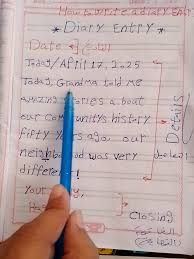 How to write a diary Entry
* Diary Entry *
Date
Today/April 17, 2025
Today, Grandma told me
amazing stories about
our community's history
fifty years ago our
neighborhood was very
different!
Your
Details
Closing